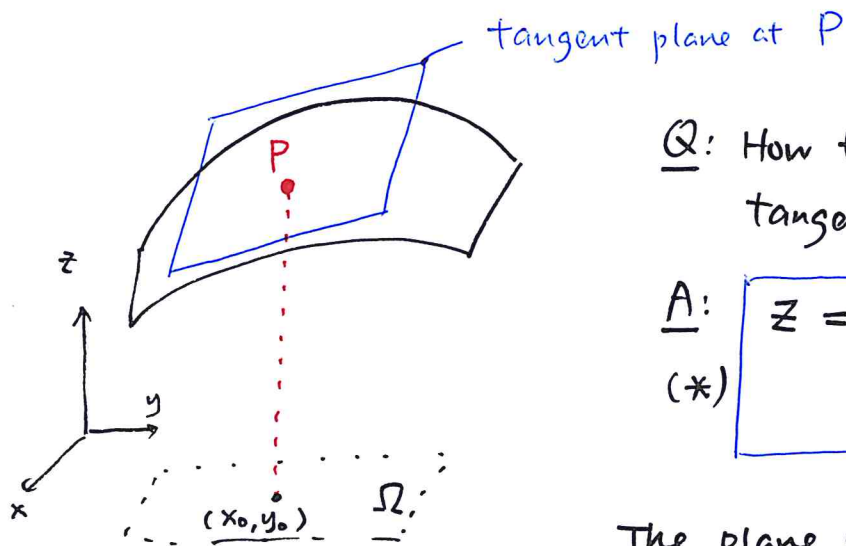 tangent plane at P
Q: How
P
z
A: z =
(*)
y
x
(x₀, y₀) Ω
The plane